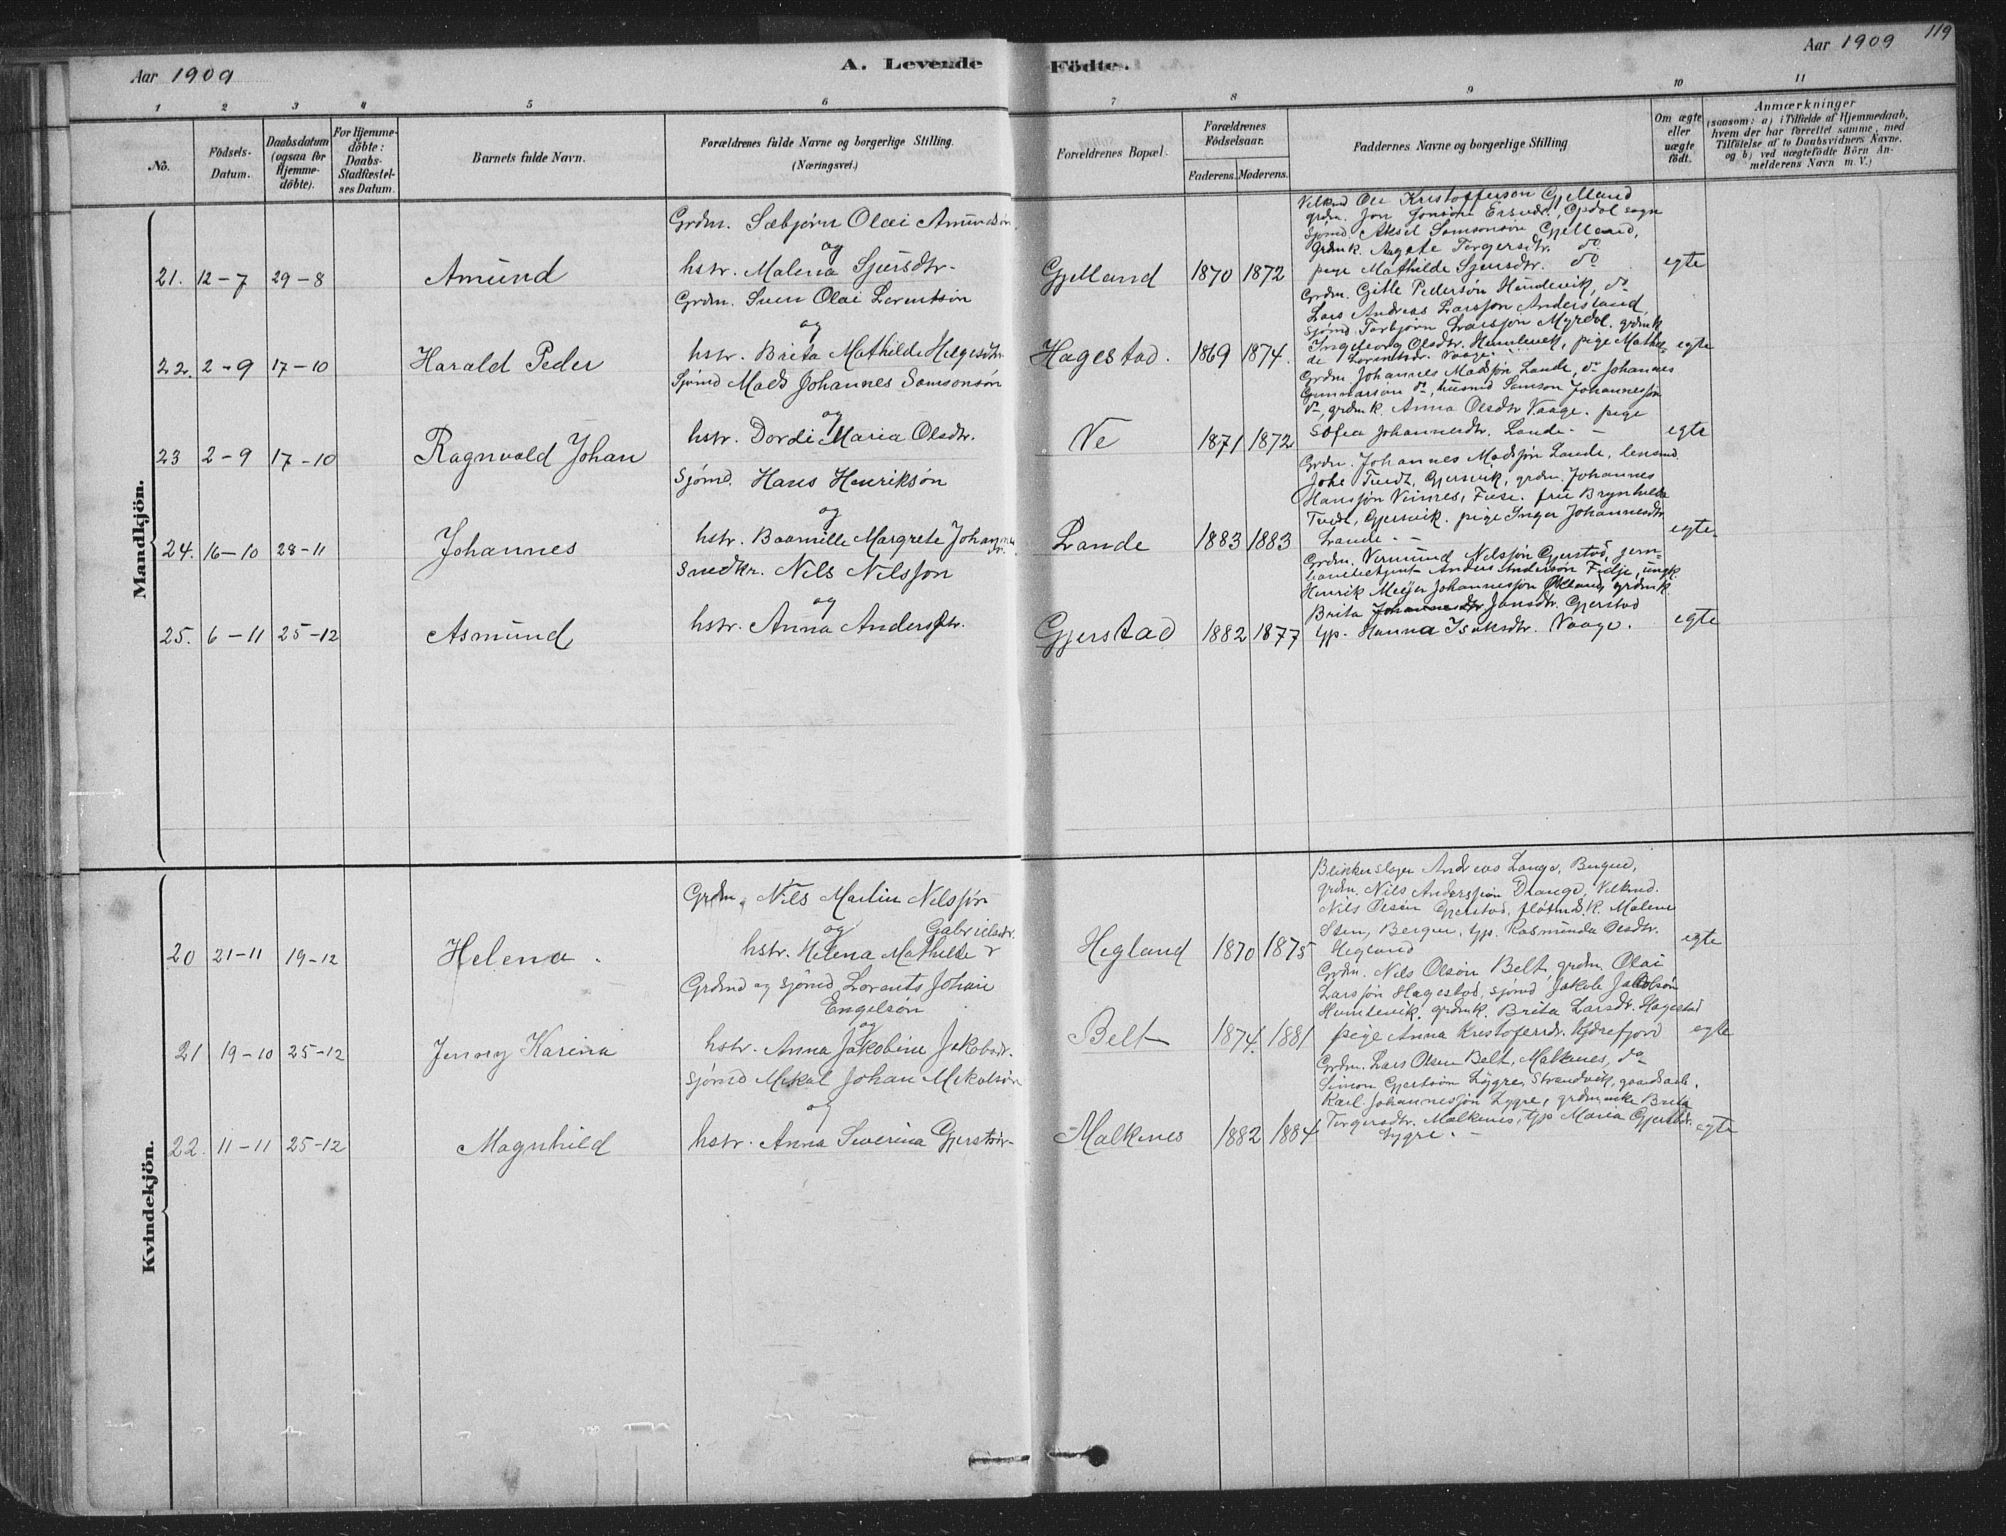 Aar 1909
A. Levende Födte.
Aar 1909
119
1 2 3 4 5 6 7 8 9 10 11
No.
Födsels-Datum.
Daabsdatum (ogsaa for Hjemme-döbte).
For Hjemme-döbte: Daabs-Stadfæstelses Datum.
Barnets fulde Navn.
Forældrenes fulde Navne og borgerlige Stilling. (Næringsvei.)
Forældrenes Bopæl.
Forældrenes Födselsaar.
Faderens. Moderens.
Faddernes Navne og borgerlige Stilling
Om ægte eller uægte födt.
Anmærkninger
(saasom: a) i Tilfælde af Hjemmedaab, hvem der har forrettet samme, med Tilföielse af to Daabsvidners Navne. og b) ved uægtefödte Börn Anmelderens Navn m. V.)
Mandkjön.
Grdm. Sæbjørn Olai Amundsøn
og
21. 12-7 29-8 Amund hstr. Malena Sjursdtr. Gjelland 1870 1872 egte
Ole Kristofferson Gjelland
grdm. Jon Jonsøn
Sjømd. Aksel Samsonsøn Gjelland,
grdmk. Aagate Torgersdtr. do
pige Mathilde Sjursdtr. do
Grdm. Sven Olai Lorentsøn
og
22. 2-9 17-10 Harald Peder hstr. Brita Mathilde Helgesdtr. Hagestad. 1869 1874. egte
Grdm. Gitle Pedersøn do
Lars Andreas Larssøn Andersland,
Sjømd. Torbjørn Larssøn Myrdal. grdmk
Ingeborg Olsdtr. pige Mathil-
de Lorentsdr. Vaage.
Sjømd Mads Johannes Samsonsøn
og
23 2-9 17-10 Ragnvald Johan hstr. Dordi Maria Olsdtr. Ve 1871 1872 egte
Grdm Johannes Madssøn Lande, do Johannes
Gunnarsøn do, husmd Samson Johannessøn
do, grdmk. Anna Olsdtr Vaage. pige
Sofia Johannesdtr. Lande.
Sjømd. Hans Henriksøn
og
24. 16-10 28-11 Johannes hstr. Margrete Lande 1883 1883 egte
Grdm. Johannes Madssøn Lande, lensmd.
Tvedt, Gjersvik, grdm. Johannes
Hanssøn Vinnes, Fuse. frue Brynhilda
Tvedt, Gjersvik. pige Inger Johannesdtr.
Lande
Snedkr. Nils Nilssøn
og
25. 6-11 25-12 Asmund hstr. Anna Andersdtr. Gjerstad 1882 1877 egte
Grdm. Vermund Nilssøn Gjerstad, jern-
banebetjent Anders Andersøn Fidje, ungk.
Henrik Meyer Johannessøn grdmk
Brita Johannesdtr Jonsdtr. Gjerstad
tjp. Hanna Isaksdtr. Vaage.
Kvindekjön.
Grdm. Nils Martin Nilssøn
og Gabrielsdr.
20 21-11 19-12 Helena. hstr. Helena Mathilde Hegland 1870 1875 egte
Andreas Lange, Bergen,
grdm. Nils Anderssøn Drange,
Nils Olsøn Gjerstad, Malene
Sten, Bergen, tjp. Rasmunda Olsdtr.
Hegland
Grdmd og sjømd Lorents Johan
Engelsøn
og
21 19-10 25-12 Jenny Karina hstr. Anna Jakobine Jakobsdr. Belt 1874. 1881 egte
Grdm. Nils Olsøn Belt, grdm. Olai
Larssøn Hagestad, sjømd Jakob Jakobsøn
grdmk. Brita Larsdr. Hagestad
pige Anna Kristofersdr.
Sjømd Mikal Johan Mikalsøn
og
22. 11-11 25-12 Magnhild hstr. Anna Severina Gjertsdr. Malkenes 1882 1884 egte
Grdm. Lars Olsen Belt, Malkenes, do
Simon Gjertsøn Lygre, Strandvik, gaardsarb.
Karl Johannessøn Lygre, grdmenke Brita
Torgersdtr. Malkenes, tjp Maria Gjertsdr.
Lygre.